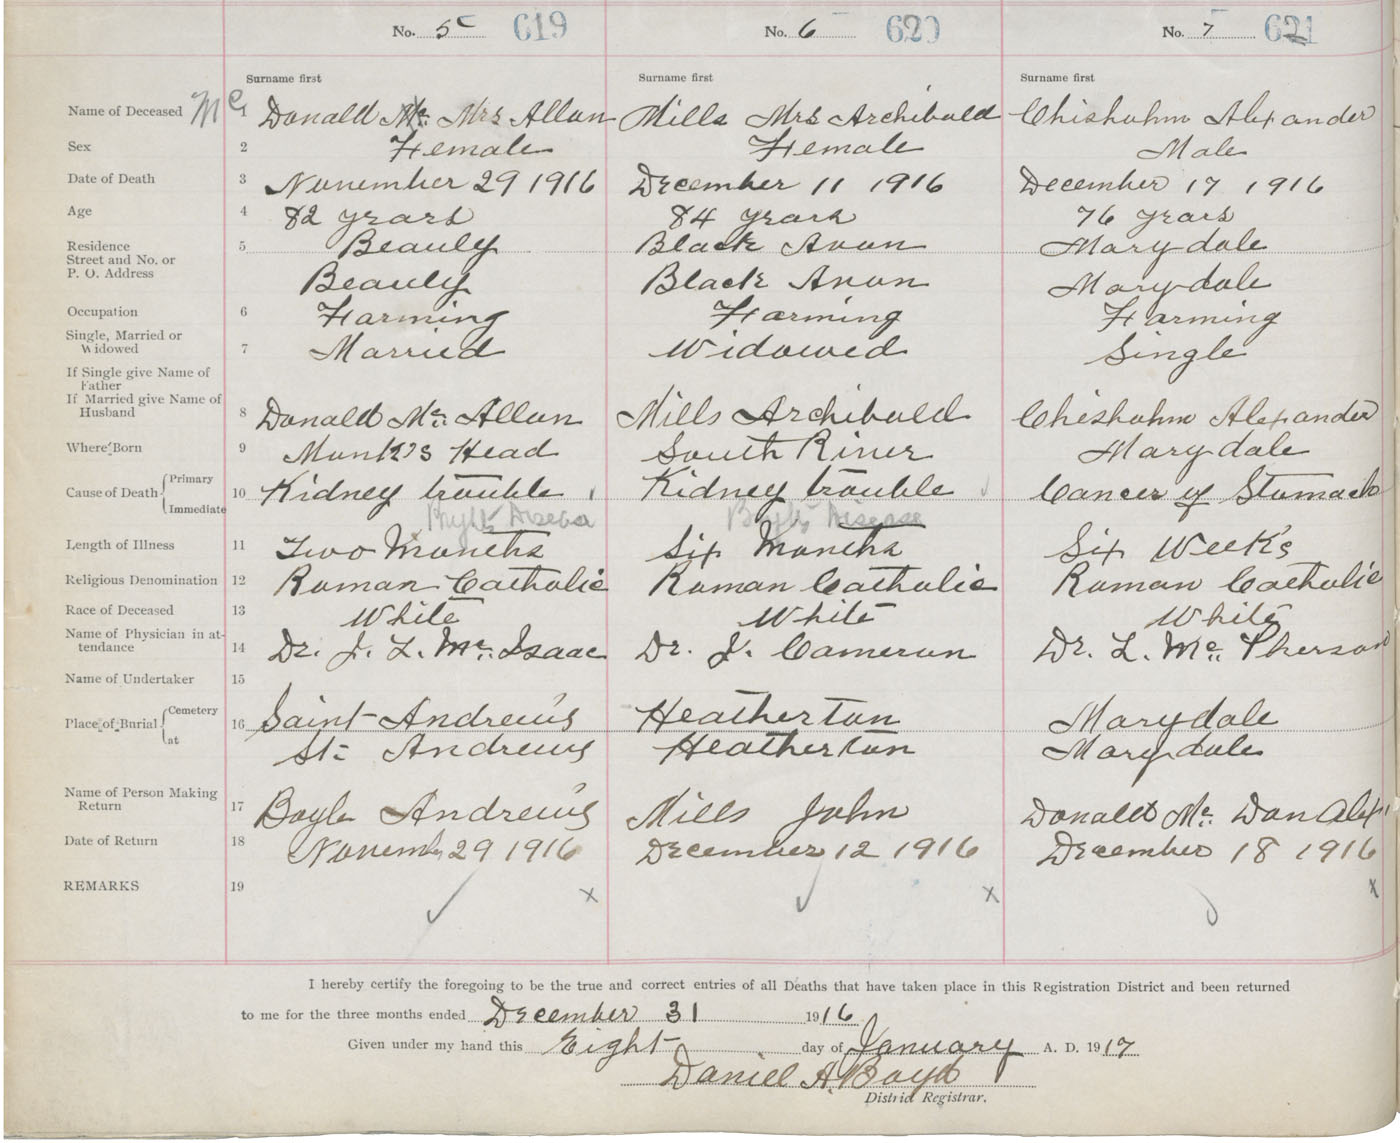 No. 5 619 No. 6 620 No. 7 621
Surname first Surname first Surname first
Name of Deceased Mc 1 Donald Mc. Mrs Allan Mills Mrs Archibald Chisholm Alexander
Sex 2 Female Female Male
Date of Death 3 November 29 1916 December 11 1916 December 17 1916
Age 4 82 years 84 years 76 years
Residence 5 Beauly Black Avon Marydale
Street and No. or
P. O. Address Beauly Black Avon Marydale
Occupation 6 Farming Farming Farming
Single, Married or
Widowed 7 Married Widowed Single
If Single give Name of
Father
If Married give Name of
Husband 8 Donald Mc. Allan Mills Archibald Chisholm Alexander
Where Born 9 Monk's Head South River Marydale
Cause of Death Primary
Immediate 10 Kidney trouble Kidney trouble Cancer of Stomach
Disease Disease
Length of Illness 11 Two Months Six Months Six Week's
Religious Denomination 12 Roman Catholic Roman Catholic Roman Catholic
Race of Deceased 13 White White White
Name of Physician in at-
tendance 14 Dr. J. L. Mc. Isaac Dr. J. Cameron Dr. L. Mc. Pherson
Name of Undertaker 15
Place of Burial Cemetery 16 Saint Andrew's Heatherton Marydale
at St. Andrews Heatherton Marydale
Name of Person Making
Return 17 Boyle Andrew's Mills John Donald Mc. Dan Alex
Date of Return 18 29 1916 December 12 1916 December 18 1916
REMARKS 19 x x x
I hereby certify the foregoing to be the true and correct entries of all Deaths that have taken place in this Registration District and been returned
to me for the three months ended December 31 1916
Given under my hand this Eight day of January A. D. 1917
Daniel A. Boyd
District Registrar.